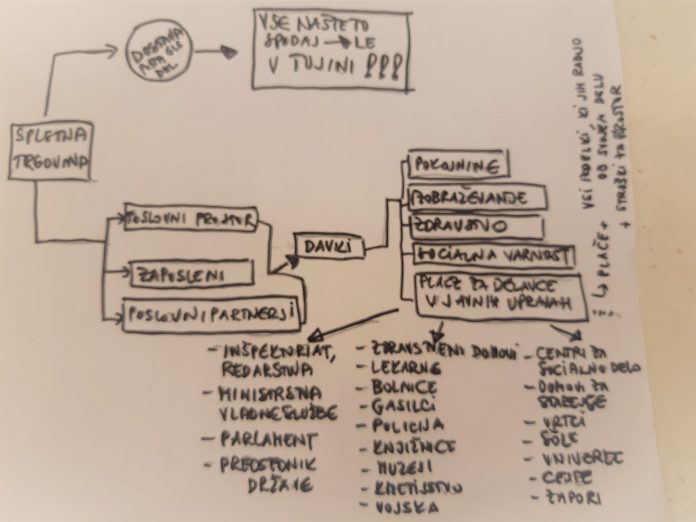 VSE NAŠTETO
SPODAJ → LE
V TUJINI !!!
SPLETNA
TRGOVINA
POSLOVNI PROSTOR
ZAPOSLENI
POSLOVNI PARTNERJI
DAVKI
POKOJNINE
IZOBRAŽEVANJE
ZDRAVSTVO
SOCIALNA VARNOST
PLAČE ZA DELAVCE
V JAVNIH UPRAVAH
- INŠPEKTORIAT,
REDARSTVA
- MINISTRSTVA
VLADNE SLUŽBE
- PARLAMENT
- PREDSEDNIK
DRŽAVE
- ZDRAVSTVENI DOMOVI
- LEKARNE
- BOLNICE
- GASILCI
- POLICIJA
- KNJIŽNICE
- MUZEJI
- KMETIJSTVO
- VOJSKA
- CENTRI ZA
SOCIALNO DELO
- DOMOVI ZA
STAREJŠE
- VRTCI
- ŠOLE
- UNIVERZE
- CESTE
- ZAPORI
VSI IZDELKI KI JIH RABIJO
OB SVOJEM DELU
+ STROŠKI ZA PROSTOR
↳ PLAČE +